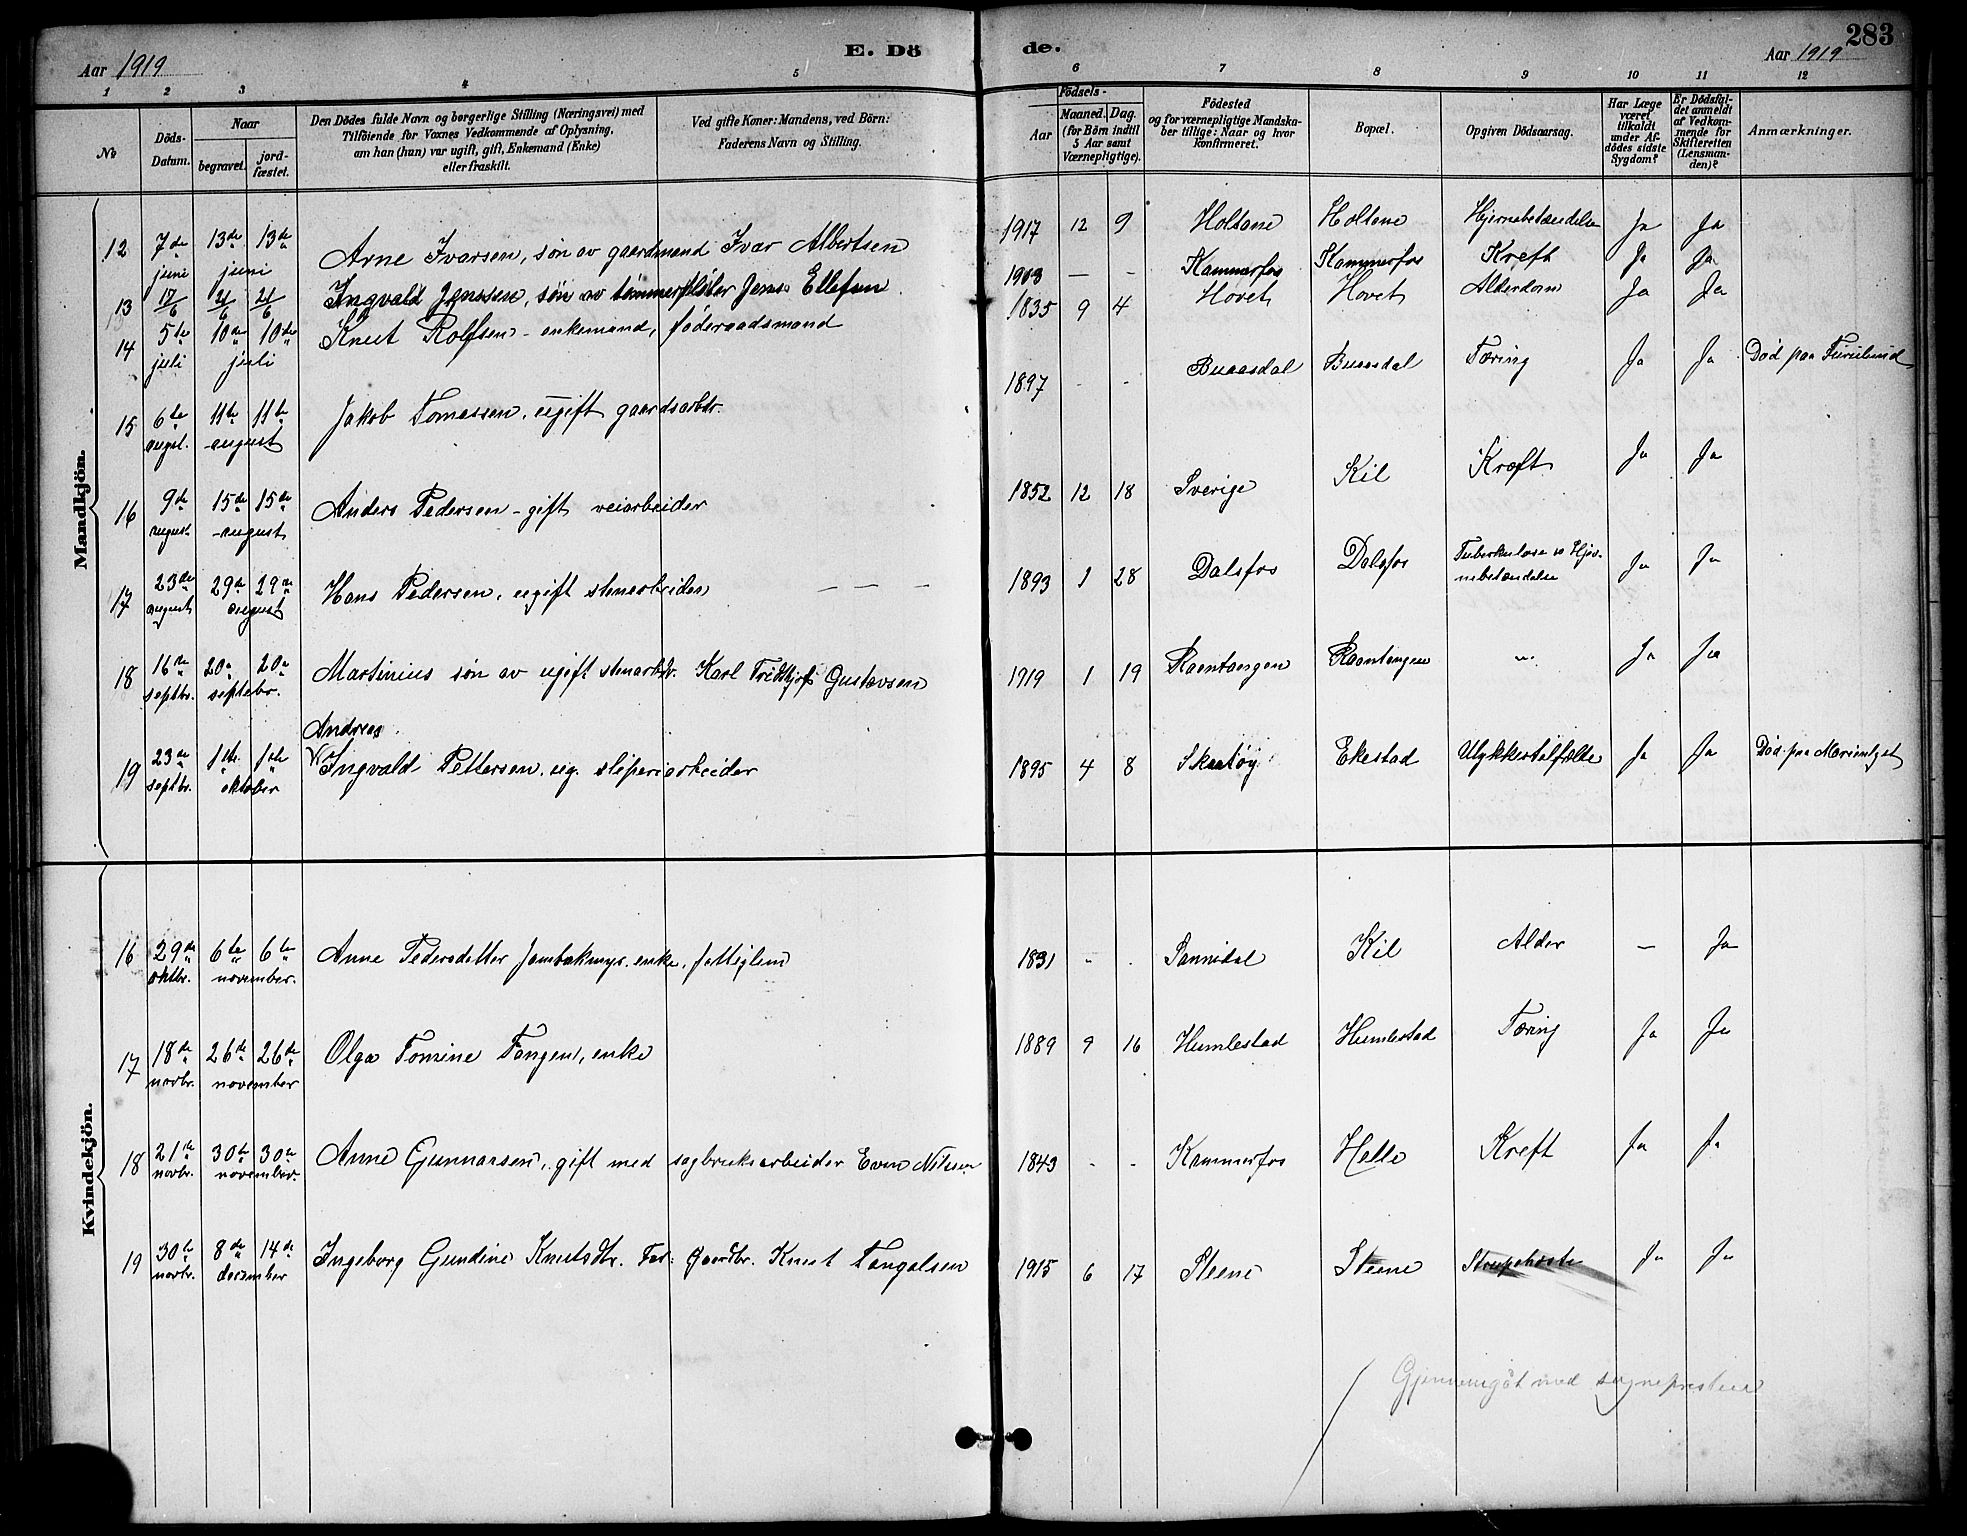 283
Aar 1919
E. Dö
de.
Aar 1919
1 2 3 4 5 6 7 8 9 10 11 12
No
Döds-
Datum.
Naar
begravet.
jord-
fæstet.
Den Dödes fulde Navn og borgerlige Stilling (Næringsvei) med
Tilföiende for Voxnes Vedkommende af Oplysning,
om han (hun) var ugift, gift, Enkemand (Enke)
eller fraskilt.
Ved gifte Koner: Mandens, ved Börn:
Faderens Navn og Stilling.
Födsels-
Aar
Maaned.
Dag.
(for Börn indtil
5 Aar samt
Værnepligtige).
Födested
og for værnepligtige Mandska-
ber tillige: Naar og hvor
konfirmeret.
Bopæl.
Opgiven Dödsaarsag.
Har Læge
været
tilkaldt
under Af-
dödes sidste
Sygdom?
Er Dödsfal-
det anmeldt
af Vedkom-
mende for
Skifteretten
(Lensman-
den)?
Anmærkninger.
Mandkjön.
12 7de juni 13de 13de juni Arne Ivarsen, søn av gaardmand Ivar Albertsen 1917 12 9 Holtane Holtane Hjernebetændelse Ja Ja
13 17/6 21/6 21/6 Ingvald Jenssen, søn av tømmerfløter Jens Ellefsen. 1903 — - Kammerfos Kammerfos Kreft Ja Ja
14 5te juli 10de 10de juli Knut Rolfsen - enkemand, føderaadsmand 1835 9 4 Hovet Hovet Alderdom Ja Ja
15 6te augst. 11te 11te august Jakob Tomassen, ugift gaardsarbdr. 1897 - - Buaasdal Buaasdal Tæring Ja Ja Død paa Furulund
16 9de august. 15de 15de august Anders Pedersen - gift veiarbeider 1852 12 18 Sverige Kil Kræft Ja Ja
17 23de august 29de 29de august Hans Pedersen, ugift stenarbeider — — - 1893 1 28 Dalsfos Dalsfos Tuberkuløse Hjer-
nebetændelse Ja Ja
18 16de septbr. 20de 20de septebr. Martinius søn av ugift stenarbdr. Karl Fridtjof Gustavsen 1919 1 19 Raentangen Raentangen „ Ja Ja
Andreas
19 23de septbr. 1ste 1ste oktober Ingvald Pettersen. ug. sliperiarbeider 1895 4 8 Skaatøy Ekestad Ulykkestilfælde Ja Ja Død paa
Kvindekjön.
16 29de oktbr. 6te 6te november. Anne Pedersdatter Jambakmyr. enke, fattiglem 1831 - - Sannidal Kil Alder — Ja
17 18de novbr. 26de 26de november Olga Tomine Tangen, enke 1889 9 16 Humlestad Humlestad Tæring Ja Ja
18 21de novbr. 30te 30te november. Anne Gunnarsen, gift med sagbruksarbeider Even Nilsen 1843 - - Kammerfos Helle Kreft Ja Ja
19 30te novbr. 8de 14de december Ingeborg Gundine Knutsdtr. Far: Gaardbr. Knut Tangalsen 1915 6 17 Steene Steene Strupehoste Ja Ja
Gjennemgåt med sogneprestens